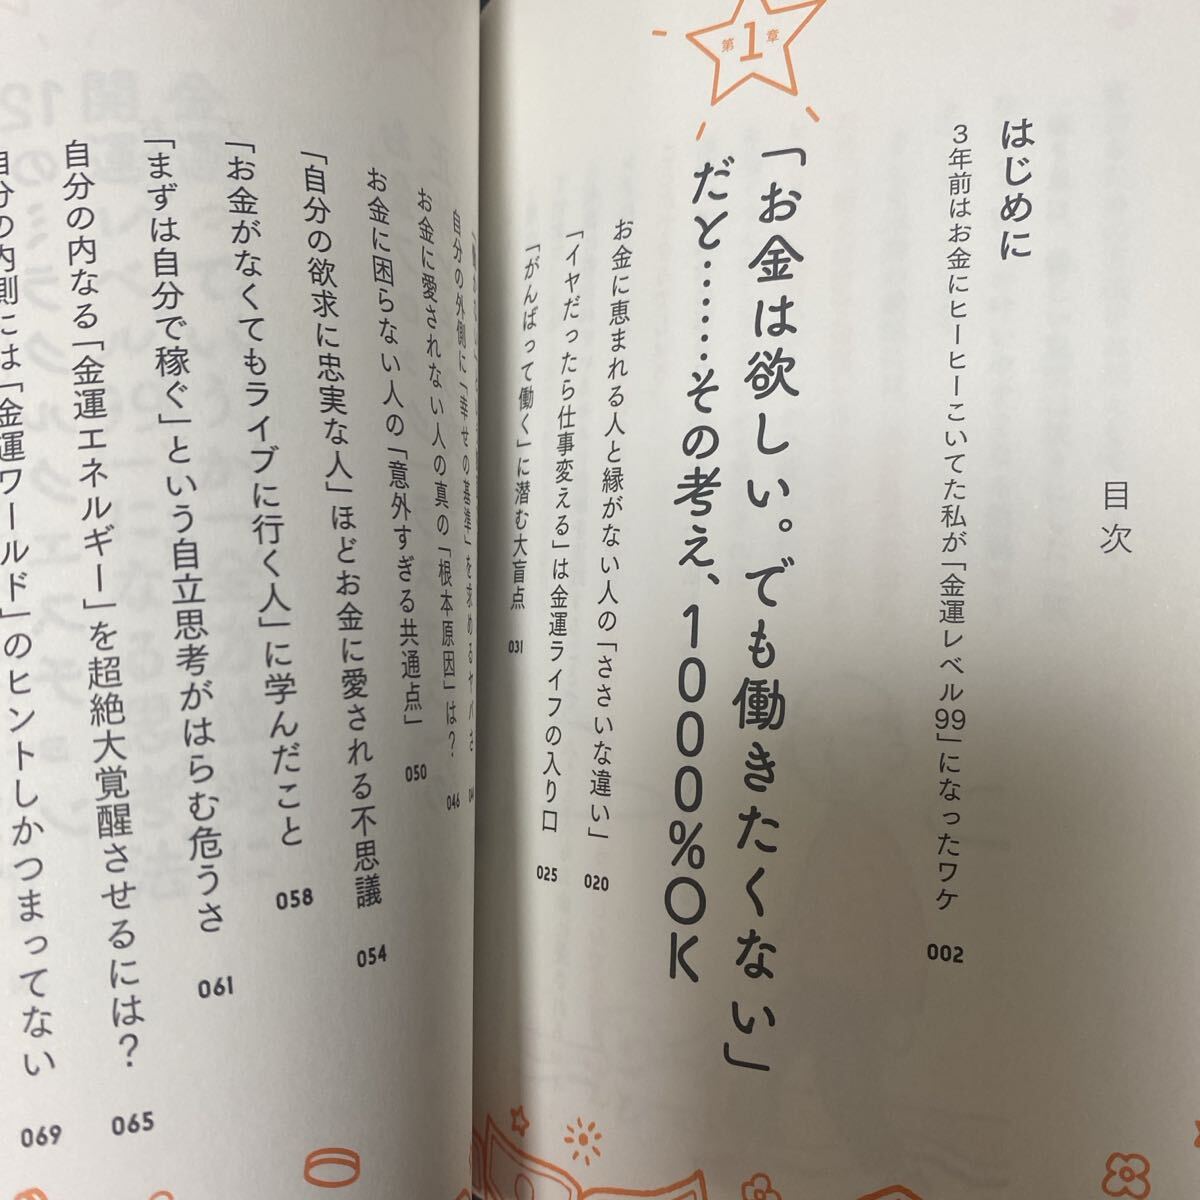 目次
はじめに
3年前はお金にヒーヒーこいてた私が「金運レベル99」になったワケ 002
第1章
「お金は欲しい。でも働きたくない」
だと……その考え、1000%OK
お金に恵まれる人と縁がない人の「ささいな違い」 020
「イヤだったら仕事変える」は金運ライフの入り口 025
「がんばって働く」に潜む大盲点 031
自分の外側に「幸せの基準」を求めるヤバさ
お金に愛されない人の真の「根本原因」は? 046
お金に困らない人の「意外すぎる共通点」 050
「自分の欲求に忠実な人」ほどお金に愛される不思議 054
「お金がなくてもライブに行く人」に学んだこと 058
「まずは自分で稼ぐ」という自立思考がはらむ危うさ 061
自分の内なる「金運エネルギー」を超絶大覚醒させるには? 065
自分の内側には「金運ワールド」のヒントしかつまってない 069